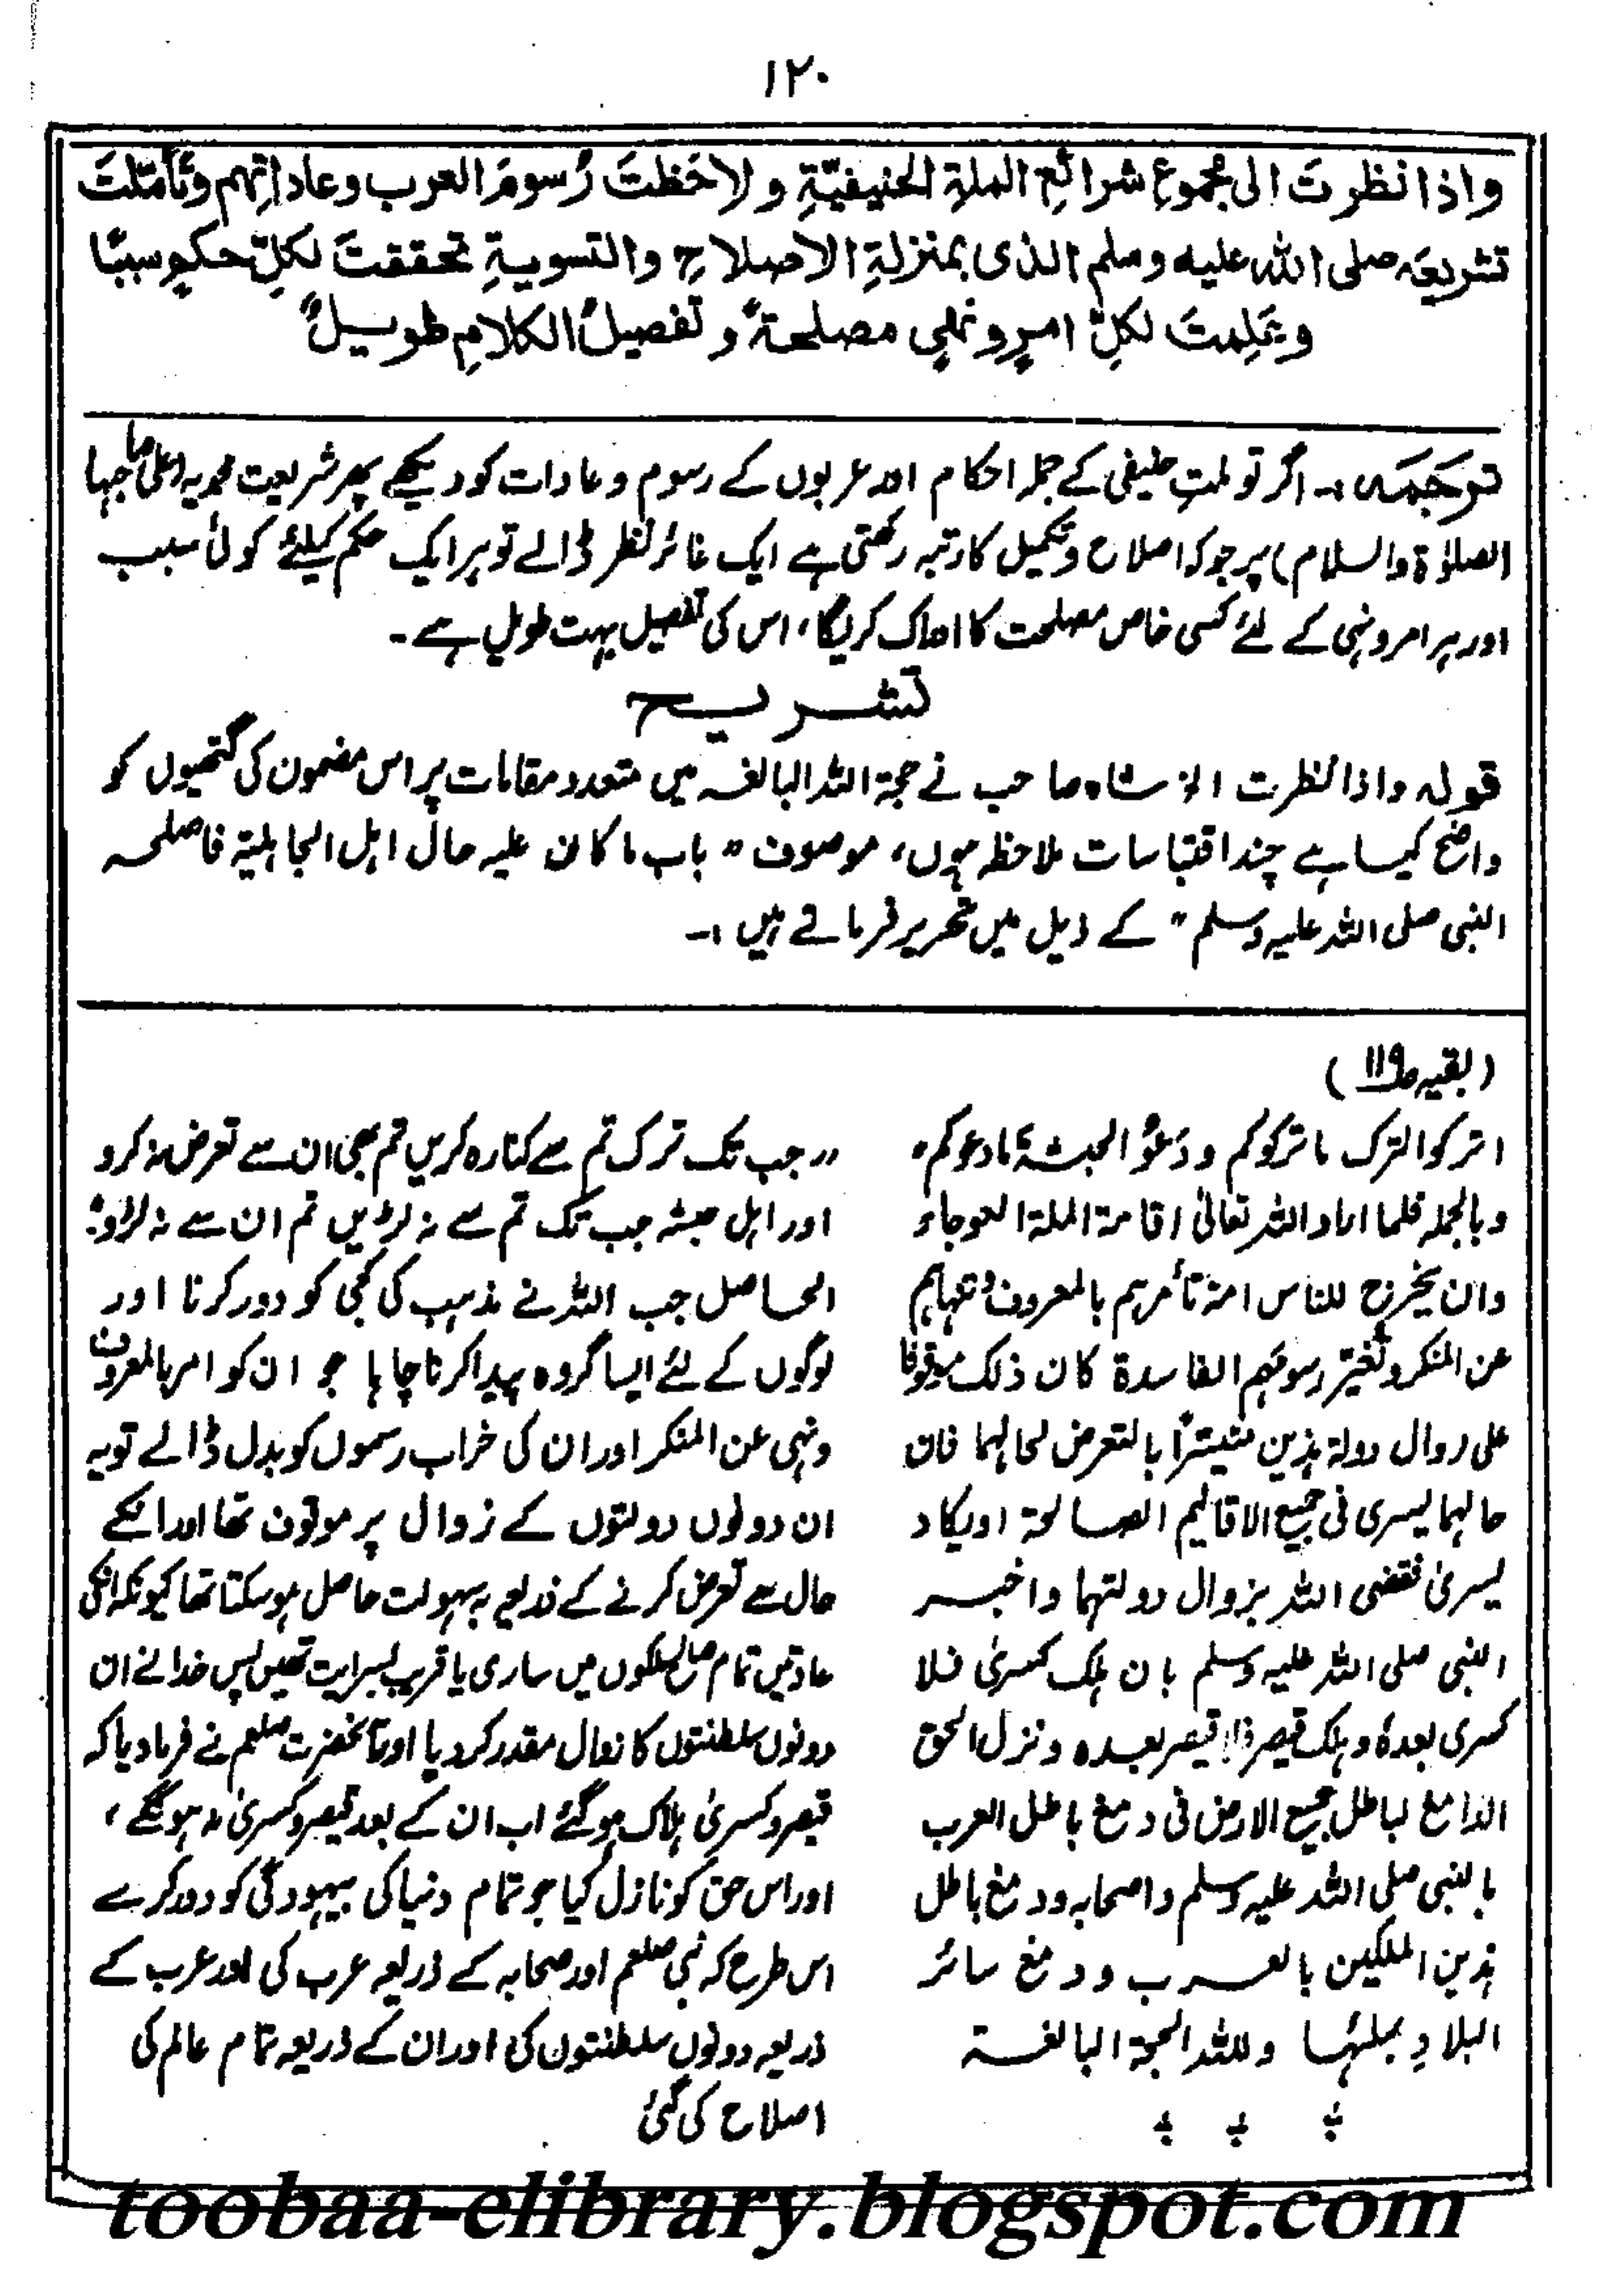 ۱۲۰
واذا نظرتَ الی مجموعِ شرائعِ الملۃِ الحنیفیّۃِ ولاحَظتَ رُسومَ العرب وعاداتِہم وتأمّلتَ
تشریعَہ صلی اللہ علیہ وسلم الذی بمنزلۃِ الاصلاحِ والتسویۃِ تحققتَ لکلِّ حکمٍ سببًا
وعَلِمتَ لکلِّ امرٍ ونہیٍ مصلحۃً وتفصیلُ الکلامِ طویلٌ
ترجَمَہ :۔ اگر تو ملتِ حنیفی کے جملہ احکام اور عربوں کے رسوم و عادات کو دیکھے پھر شریعت محمدیہ (علی صاحبہا
الصلوٰۃ والسلام) پر جو کہ اصلاح و تکمیل کا رتبہ رکھتی ہے ایک غائر نظر ڈالے تو ہر ایک حکم کیلئے کوئی سبب
اور ہر امر و نہی کے لئے کسی خاص مصلحت کا ادراک کریگا، اس کی تفصیل بہت طویل ہے۔
تشریح
قولہ واذا نظرت الخ شاہ صاحب نے حجۃ اللہ البالغہ میں متعدد مقامات پر اس مضمون کی گتھیوں کو
واضح کیا ہے چند اقتباسات ملاحظہ ہوں، موصوف " باب ما کان علیہ حال اہل الجاہلیۃ فاصلحہ
النبی صلی اللہ علیہ وسلم " کے ذیل میں تحریر فرماتے ہیں :۔
(بقیہ ص۱۱۹)
اترکوا الترک ما ترکوکم ودَعُوا الحبشۃ ما دعوکم،
وبالجملہ فلما اراد اللہ تعالیٰ اقامۃ الملۃ العوجاء
وان یخرج للناس امۃ تأمرہم بالمعروف وتنہاہم
عن المنکر وتغیّر رسومہم الفاسدۃ کان ذلک موقوفا
علی زوال دولۃ ہٰذین متیسّراً بالتعرض لحالہما فان
حالہما یسری فی جمیع الاقالیم الصالحۃ او یکاد
یسری فقضی اللہ بزوال دولتہما واخبر
النبی صلی اللہ علیہ وسلم بان ہلک کسریٰ فلا
کسری بعدہٗ وہلک قیصر فلا قیصر بعدہ ونزل الحق
الدامغ لباطل جمیع الارض فی دمغ باطل العرب
بالنبی صلی اللہ علیہ وسلم واصحابہ ودمغ باطل
ہٰذین الملکین بالعرب ودمغ سائر
البلادِ بملئہا وللہ الحجۃ البالغۃ
؞ ؞ ؞
"جب تک ترک تم سے کنارہ کریں تم بھی ان سے تعرض نہ کرو
اور اہل حبشہ جب تک تم سے نہ لڑیں تم ان سے نہ لڑو"؛
الحاصل جب اللہ نے مذہب کی کجی کو دور کرنا اور
لوگوں کے لئے ایسا گروہ پیدا کرنا چاہا جو ان کو امر بالمعروف
ونہی عن المنکر اور ان کی خراب رسموں کو بدل ڈالے تو یہ
ان دونوں دولتوں کے زوال پر موقوف تھا اور انکے
حال سے تعرض کرنے کے ذریعہ بسہولت حاصل ہوسکتا تھا کیونکہ انکی
عادتیں تمام صالح ملکوں میں ساری یا قریب بسرایت تھیں پس خدا نے ان
دونوں سلطنتوں کا زوال مقدر کر دیا اور آنحضرت صلعم نے فرما دیا کہ
قیصر و کسریٰ ہلاک ہوگئے اب ان کے بعد قیصر و کسریٰ نہ ہونگے،
اور اس حق کو نازل کیا جو تمام دنیا کی بیہودگی کو دور کرے
اس طرح کہ نبی صلعم اور صحابہ کے ذریعہ عرب کی اور عرب کے
ذریعہ دونوں سلطنتوں کی اور ان کے ذریعہ تمام عالم کی
اصلاح کی گئی
toobaa-elibrary.blogspot.com